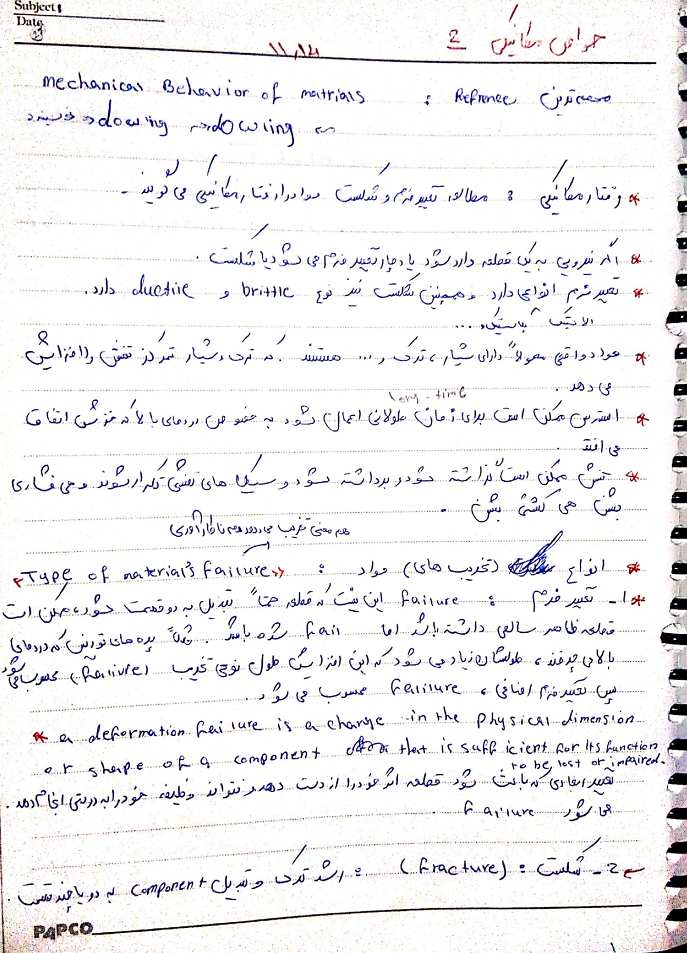 Subject:
Date
خواص مکانیکی 2
11,14
مهمترین Refrence : mechanical Behavior of matrials
dowling
* رفتار مکانیکی : مطالعه تغییر فرم و شکست مواد را رفتار مکانیکی می گویند .
* اگر نیرویی به یک قطعه وارد شود یا دچار تغییر فرم می شود یا شکست .
* تغییر فرم انواعی دارد و همچنین شکست نیز نوع brittle و ductile دارد.
الاستیک پلاستیک ...
* مواد واقعی معمولاً دارای شیار ، ترک و ... هستند . که ترک و شیار تمرکز تنش را افزایش
می دهد .
long-time
* استرس ممکن است برای زمان طولانی اعمال شود به خصوص در دمای بالا که خزش اتفاق
می افتد .
* تنش ممکن است گذاشته شود و برداشته شود و سیکل های تنشی تکرار شوند و هی فشاری
بشن هی کششی بشن .
هم معنی تخریب می دهد هم ناکارآوری
* انواع (تخریب های) مواد : «Type of material's failure»
* 1- تغییر فرم : failure این نیست که قطعه حتماً تبدیل به دو قسمت شود ، ممکن است
قطعه ظاهر سالمی داشته باشد اما fail شده باشد . مثلاً پره های توربین که در دمای
بالا می چرخند ، طولشان زیاد می شود که این افزایش طول نوعی تخریب (failure) محسوب می شود
پس تغییر فرم اضافی ، failure محسوب می شود .
* a deformation failure is a change in the physical dimension
or shape of a component that is sufficient for its function
to be lost or impaired.
تغییر ابعادی که باعث شود قطعه اثر خود را از دست دهد و نتواند وظیفه خود را به درستی انجام دهد .
failure می شود
2- شکست : (fracture) : رشد ترک و تبدیل component به دو یا چند قسمت .
PAPCO